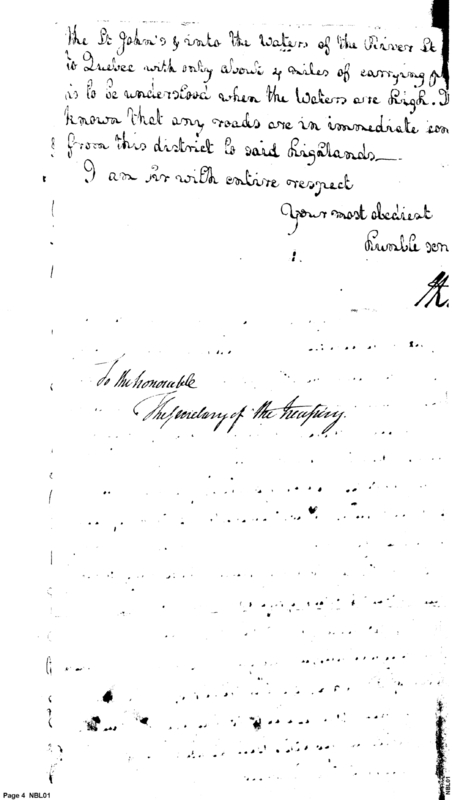 the St John's & into the Waters of the River St
to Quebec with only about 4 miles of carrying
is to be understood when the Waters are high.
known that any roads are in immediate con
from this district to said highlands
I am Sir with entire respect
Your most obedient
humble
To the honorable
The Secretary of the Treasury
Page 4 NBL01
NBL01